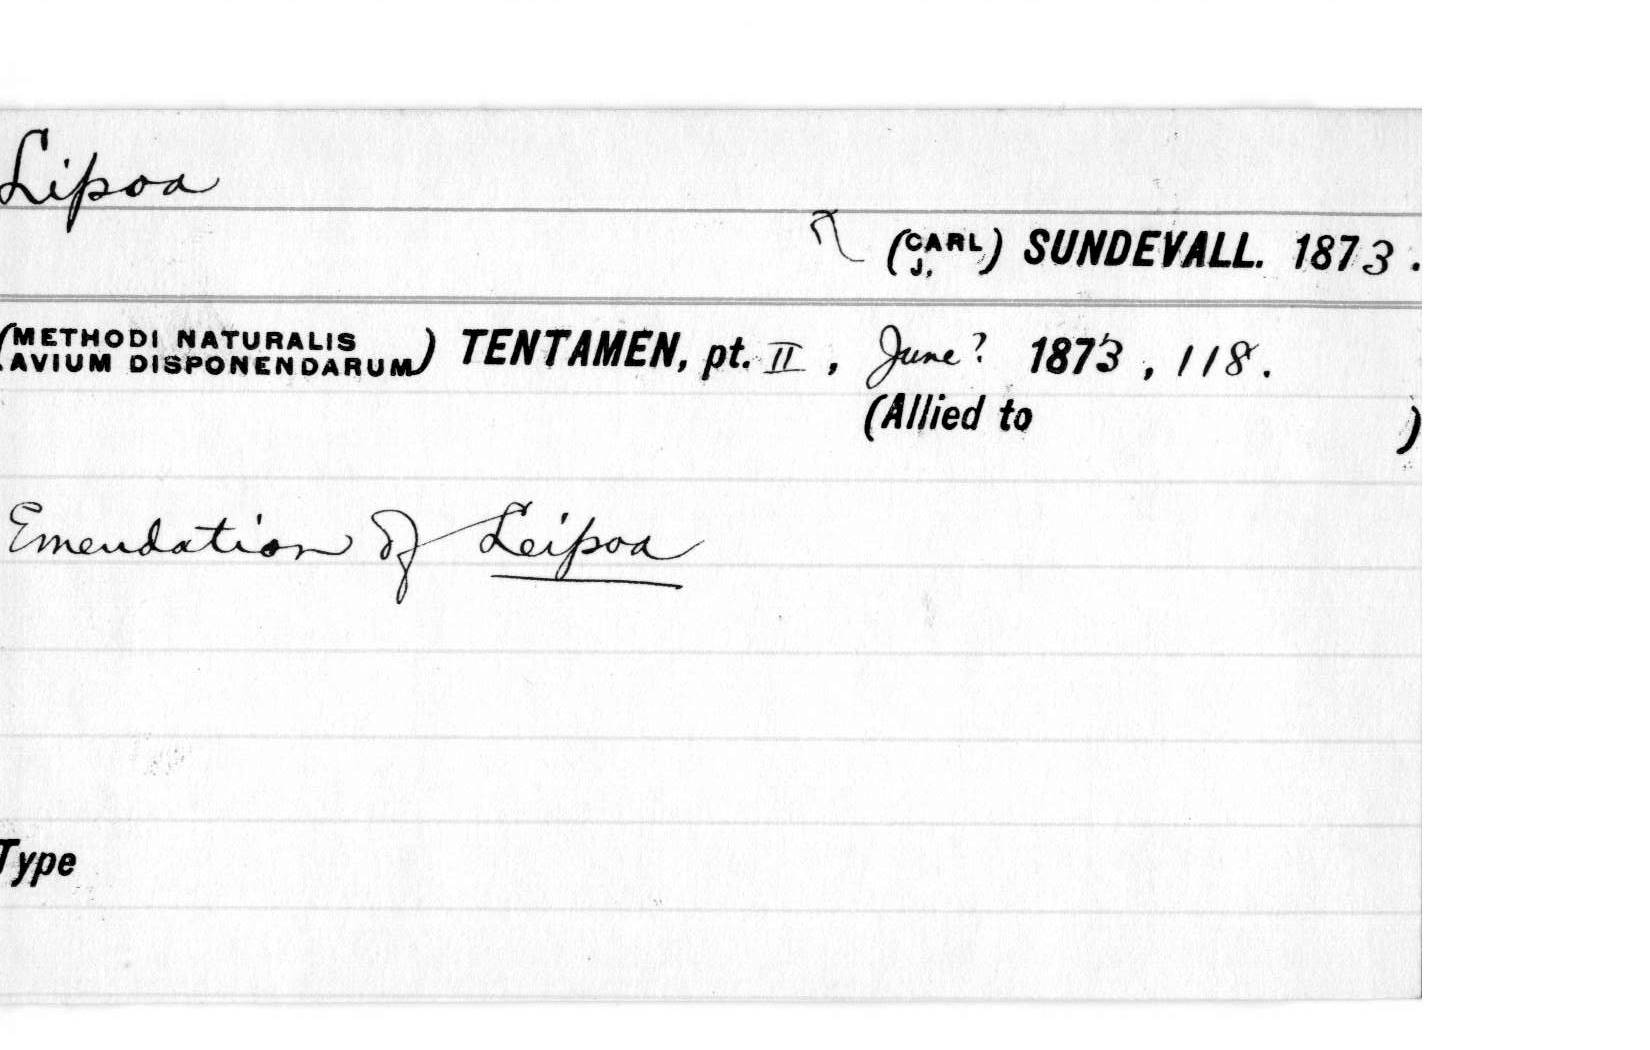 Lipoa
(CARL J.) SUNDEVALL. 1873.
(METHODI NATURALIS AVIUM DISPONENDARUM) TENTAMEN, pt. II, June? 1873, 118.
(Allied to )
Emendation of Leipoa
Type